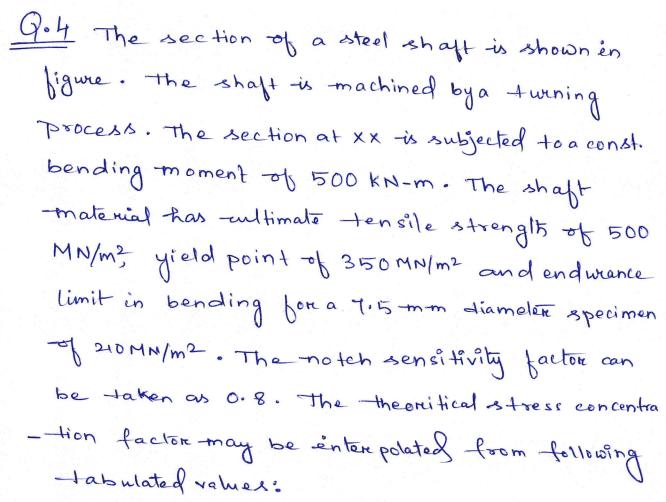 Q.4 The section of a steel shaft is shown in
figure. The shaft is machined by a turning
process. The section at XX is subjected to a const.
bending moment of 500 KN-m. The shaft
material has ultimate tensile strength of 500
MN/m², yield point of 350 MN/m² and endurance
limit in bending for a 7.5 mm diameter specimen
of 210 MN/m². The notch sensitivity factor can
be taken as 0.8. The theoritical stress concentra
-tion factor may be enterpolated from following
tabulated values: